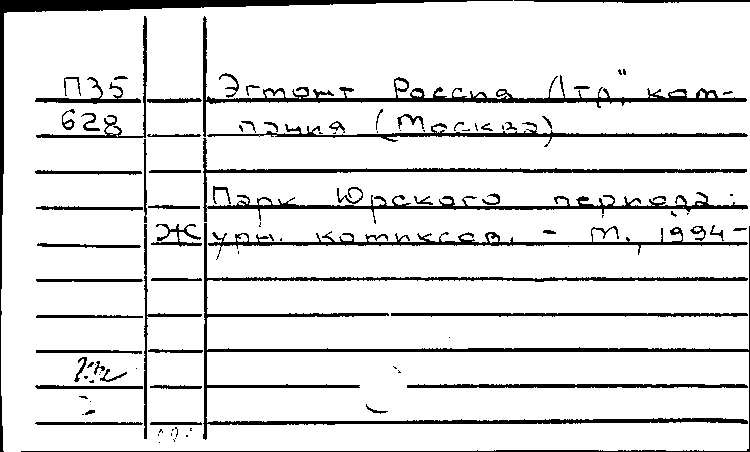 П35 Эгмонт Россия Лтд", ком-
628 пания (Москва)
Парк Юрского периода:
Журн. комиксов. - М., 1994-